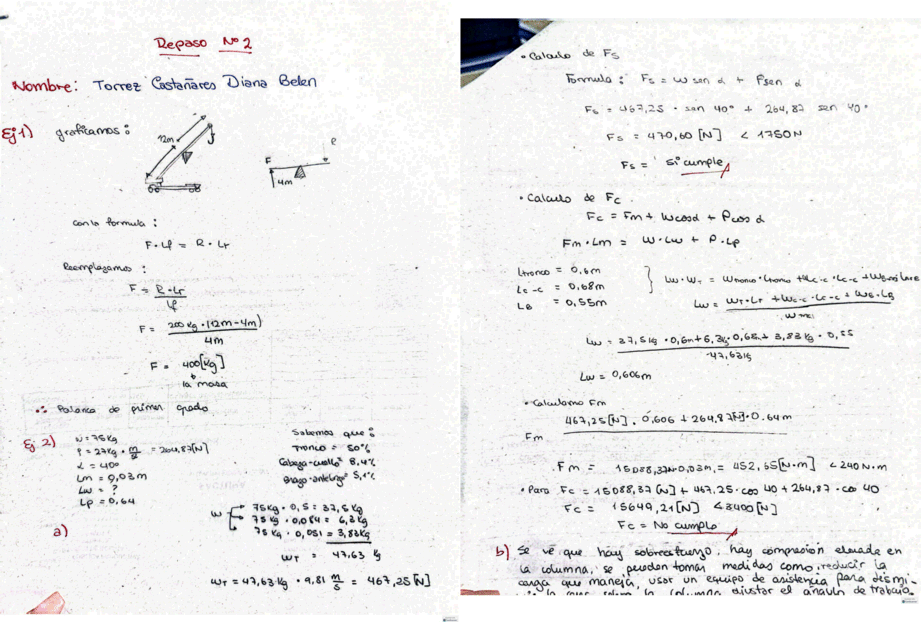 Repaso Nº 2
Nombre: Torrez Castañares Diana Belen
Ej 1) graficamos:
12m
F
4m
con la formula:
F · Lf = R · Lr
Reemplazamos:
F = R · Lr
Lf
F = 200 kg · (12m - 4m)
4m
F = 400 [kg]
la masa
∴ Palanca de primer grado
Ej 2)
W = 75 kg
P = 27kg · m/s² = 264,87 [N]
α = 40°
Lm = 0,03 m
Lw = ?
Lp = 0,64
Sabemos que:
Tronco = 50%
Cabeza-cuello = 8,4%
Brazo-antebrazo = 5,1%
a)
W
75kg · 0,5 = 37,5 kg
75 kg · 0,084 = 6,3 kg
75 kg · 0,051 = 3,83 kg
WT = 47,63 kg
WT = 47,63 kg · 9,81 m/s = 467,25 [N]
• Calculo de Fs
Formula: Fs = W sen α + P sen α
Fs = 467,25 · sen 40° + 264,87 sen 40°
Fs = 470,60 [N] < 1750N
Fs = si cumple
• Calculo de Fc
Fc = Fm + W cos α + P cos α
Fm · Lm = W · Lw + P · Lp
Ltronco = 0,6m
Lc-c = 0,68m
LB = 0,55m
Lw · WT = Wtronco · Ltronco + Wc-c · Lc-c +
Lw = WT · LT + Wc-c · Lc-c + WB · LB
Lw = 37,5 kg · 0,6m + 6,3kg · 0,68m + 3,83 kg · 0,55
47,63 kg
Lw = 0,606m
• Calculamo Fm
467,25 [N] · 0,606 + 264,87 [N] · 0.64m
Fm
Fm = 15088,37N · 0,03m = 452,65 [N·m] < 240 N·m
• Para Fc = 15088,37 [N] + 467,25 · cos 40 + 264,87 · cos 40
Fc = 15649,21 [N] < 3400 [N]
Fc = No cumple
b) Se ve que hay sobreesfuerzo, hay compresion elevada en
la columna, se pueden tomar medidas como: reducir la
carga que maneja, usar un equipo de asistencia para dismi-
la columna, ajustar el angulo de trabajo.